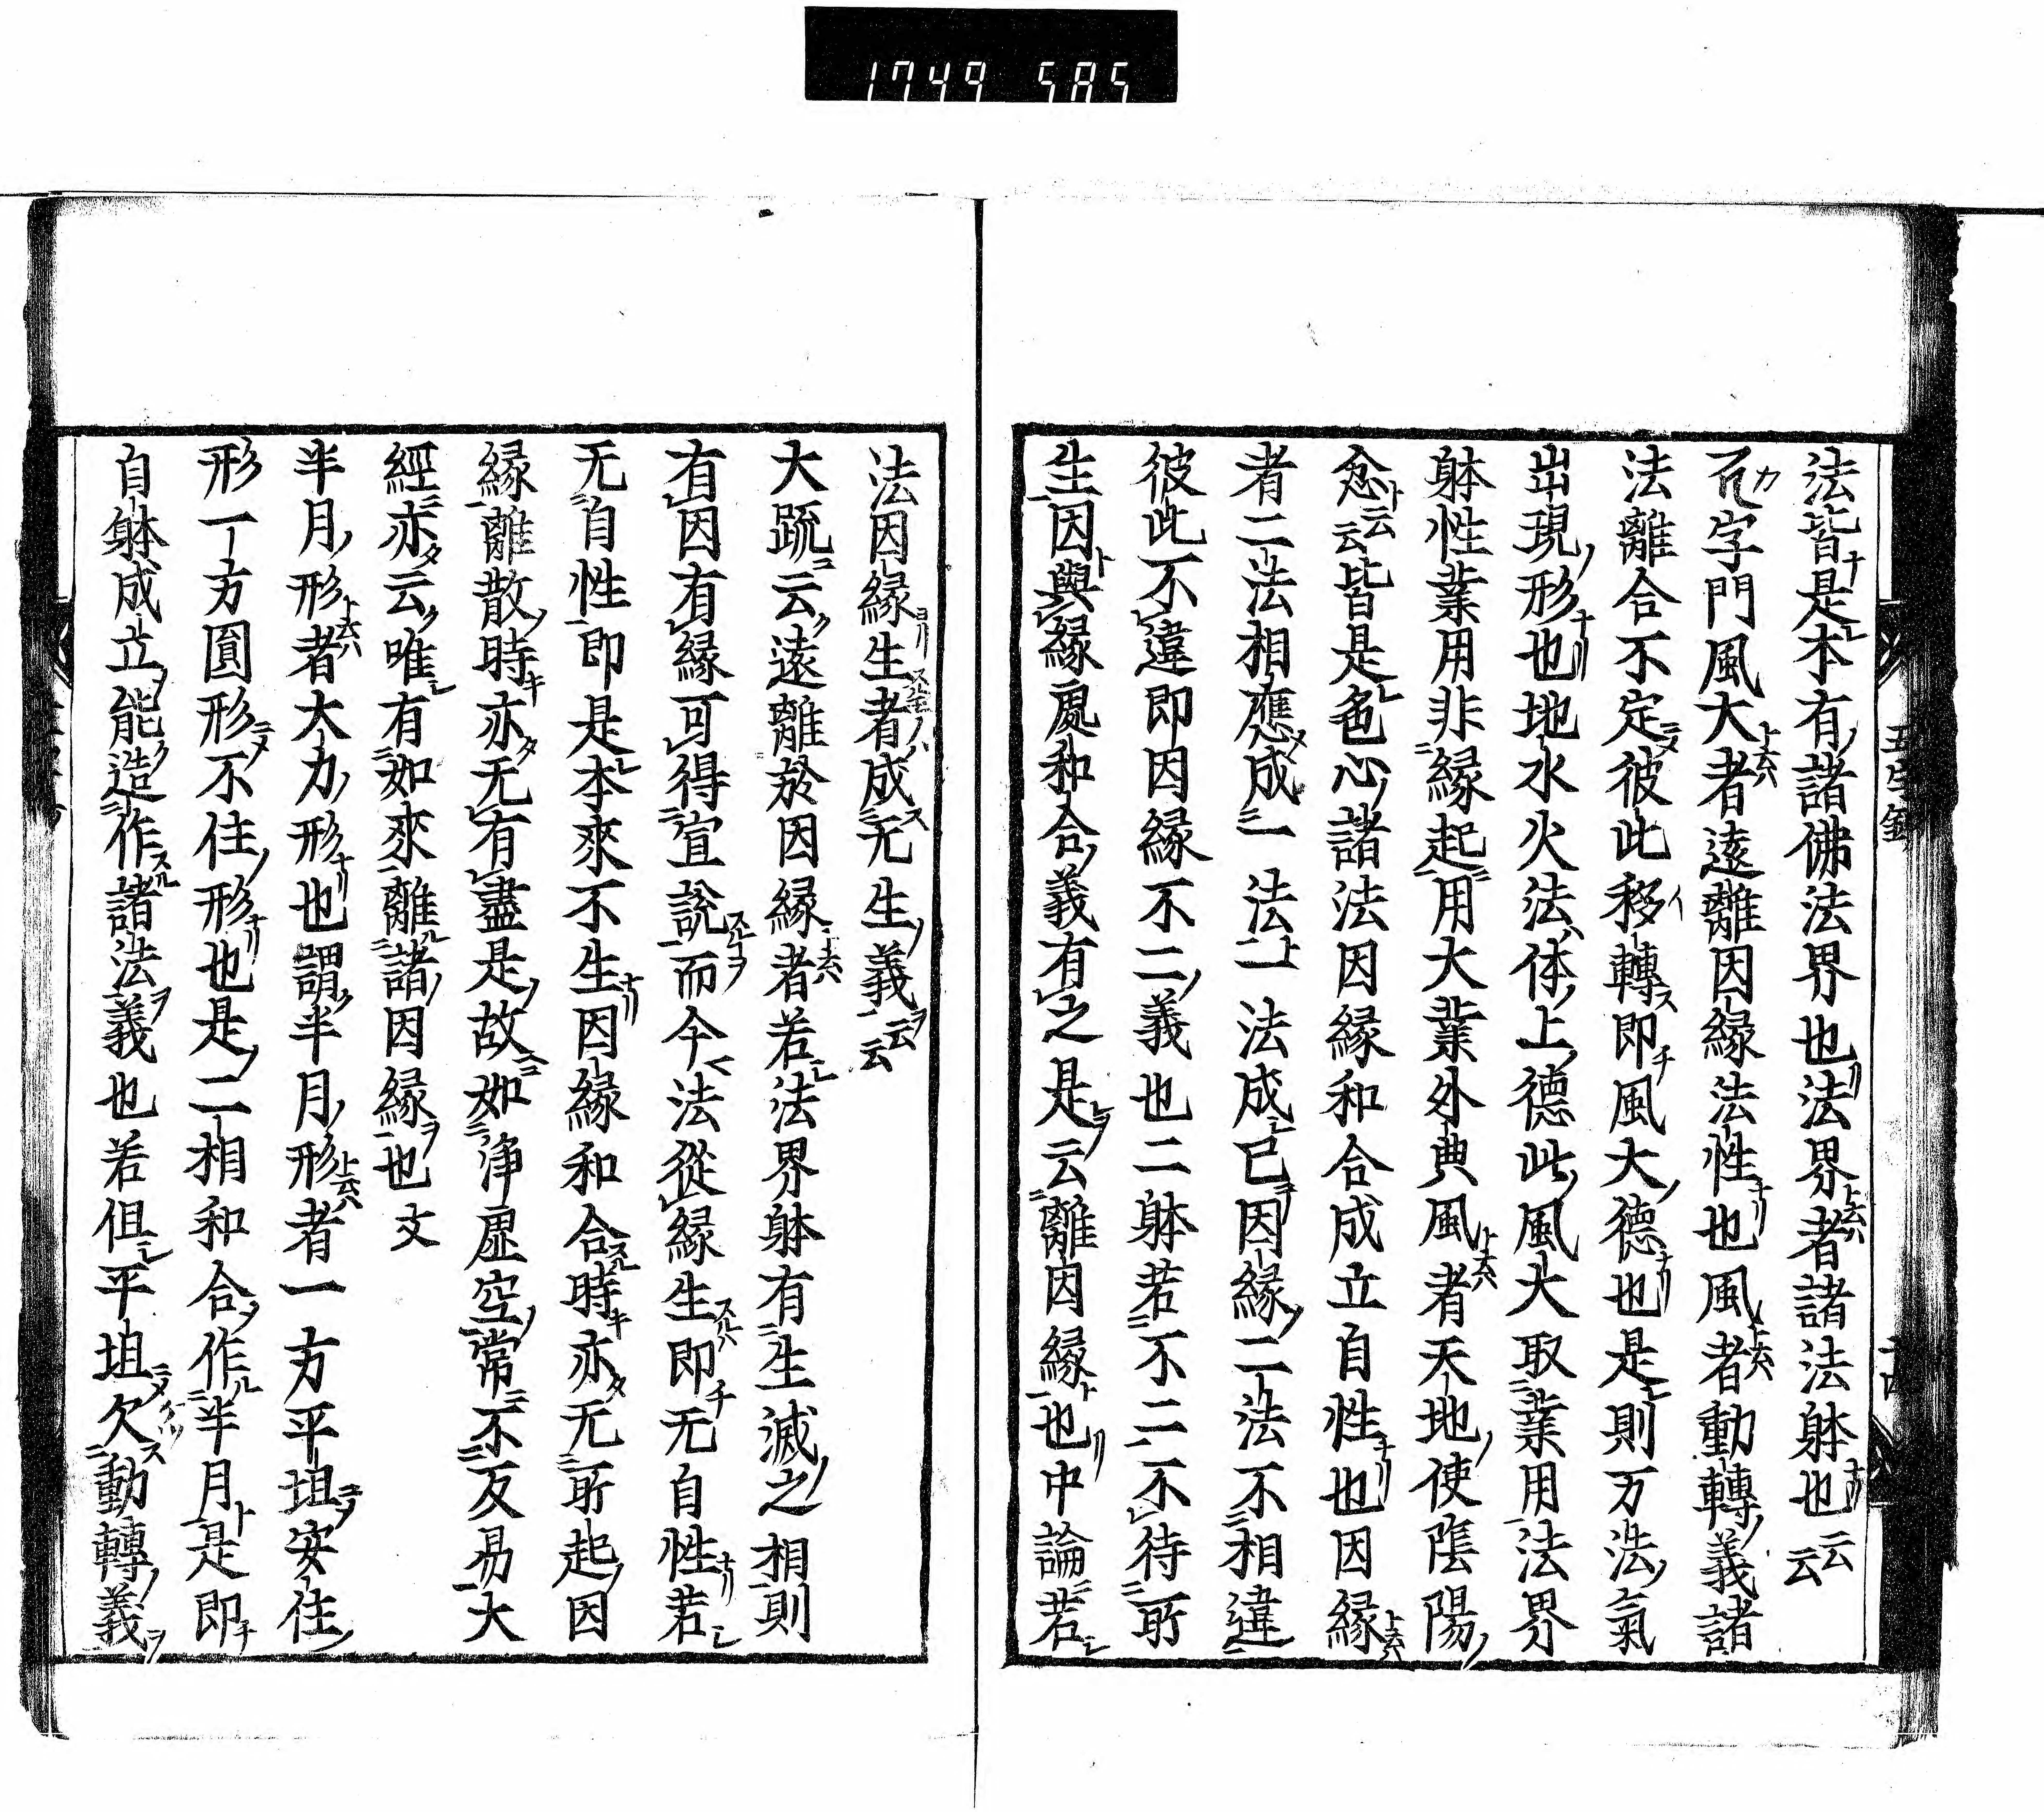 1749 585
法皆是本有諸佛法界也法界者諸法躰也云云
字門風大者遠離因縁法性也風者動轉義諸
法離合不定彼此移轉即風大德也是則万法氣
出現形也地水火法体上德此風大取業用法界
躰性業用非縁起用大業外典風者天地使陰陽
念云云皆是色心諸法因縁和合成立自性也因縁
者二法相應成一法一法成已因縁二法不相違
彼此不違即因縁不二義也二躰若不二不待所
生因與縁處和合義有之是云離因縁也中論若
法因縁生者成无生義云云
大疏云遠離於因縁者若法界躰有生滅之相則
有因有縁可得宣説而今法從縁生即无自性若
无自性即是本來不生因縁和合時亦无所起因
縁離散時亦无有盡是故如淨虚空常不反易大
經亦云唯有如來離諸因縁也文
半月形者大力形也謂半月形者一方平坦安住
形一方圓形不住形也是二相和合作半月是即
自躰成立能造作諸法義也若但平坦欠動轉義